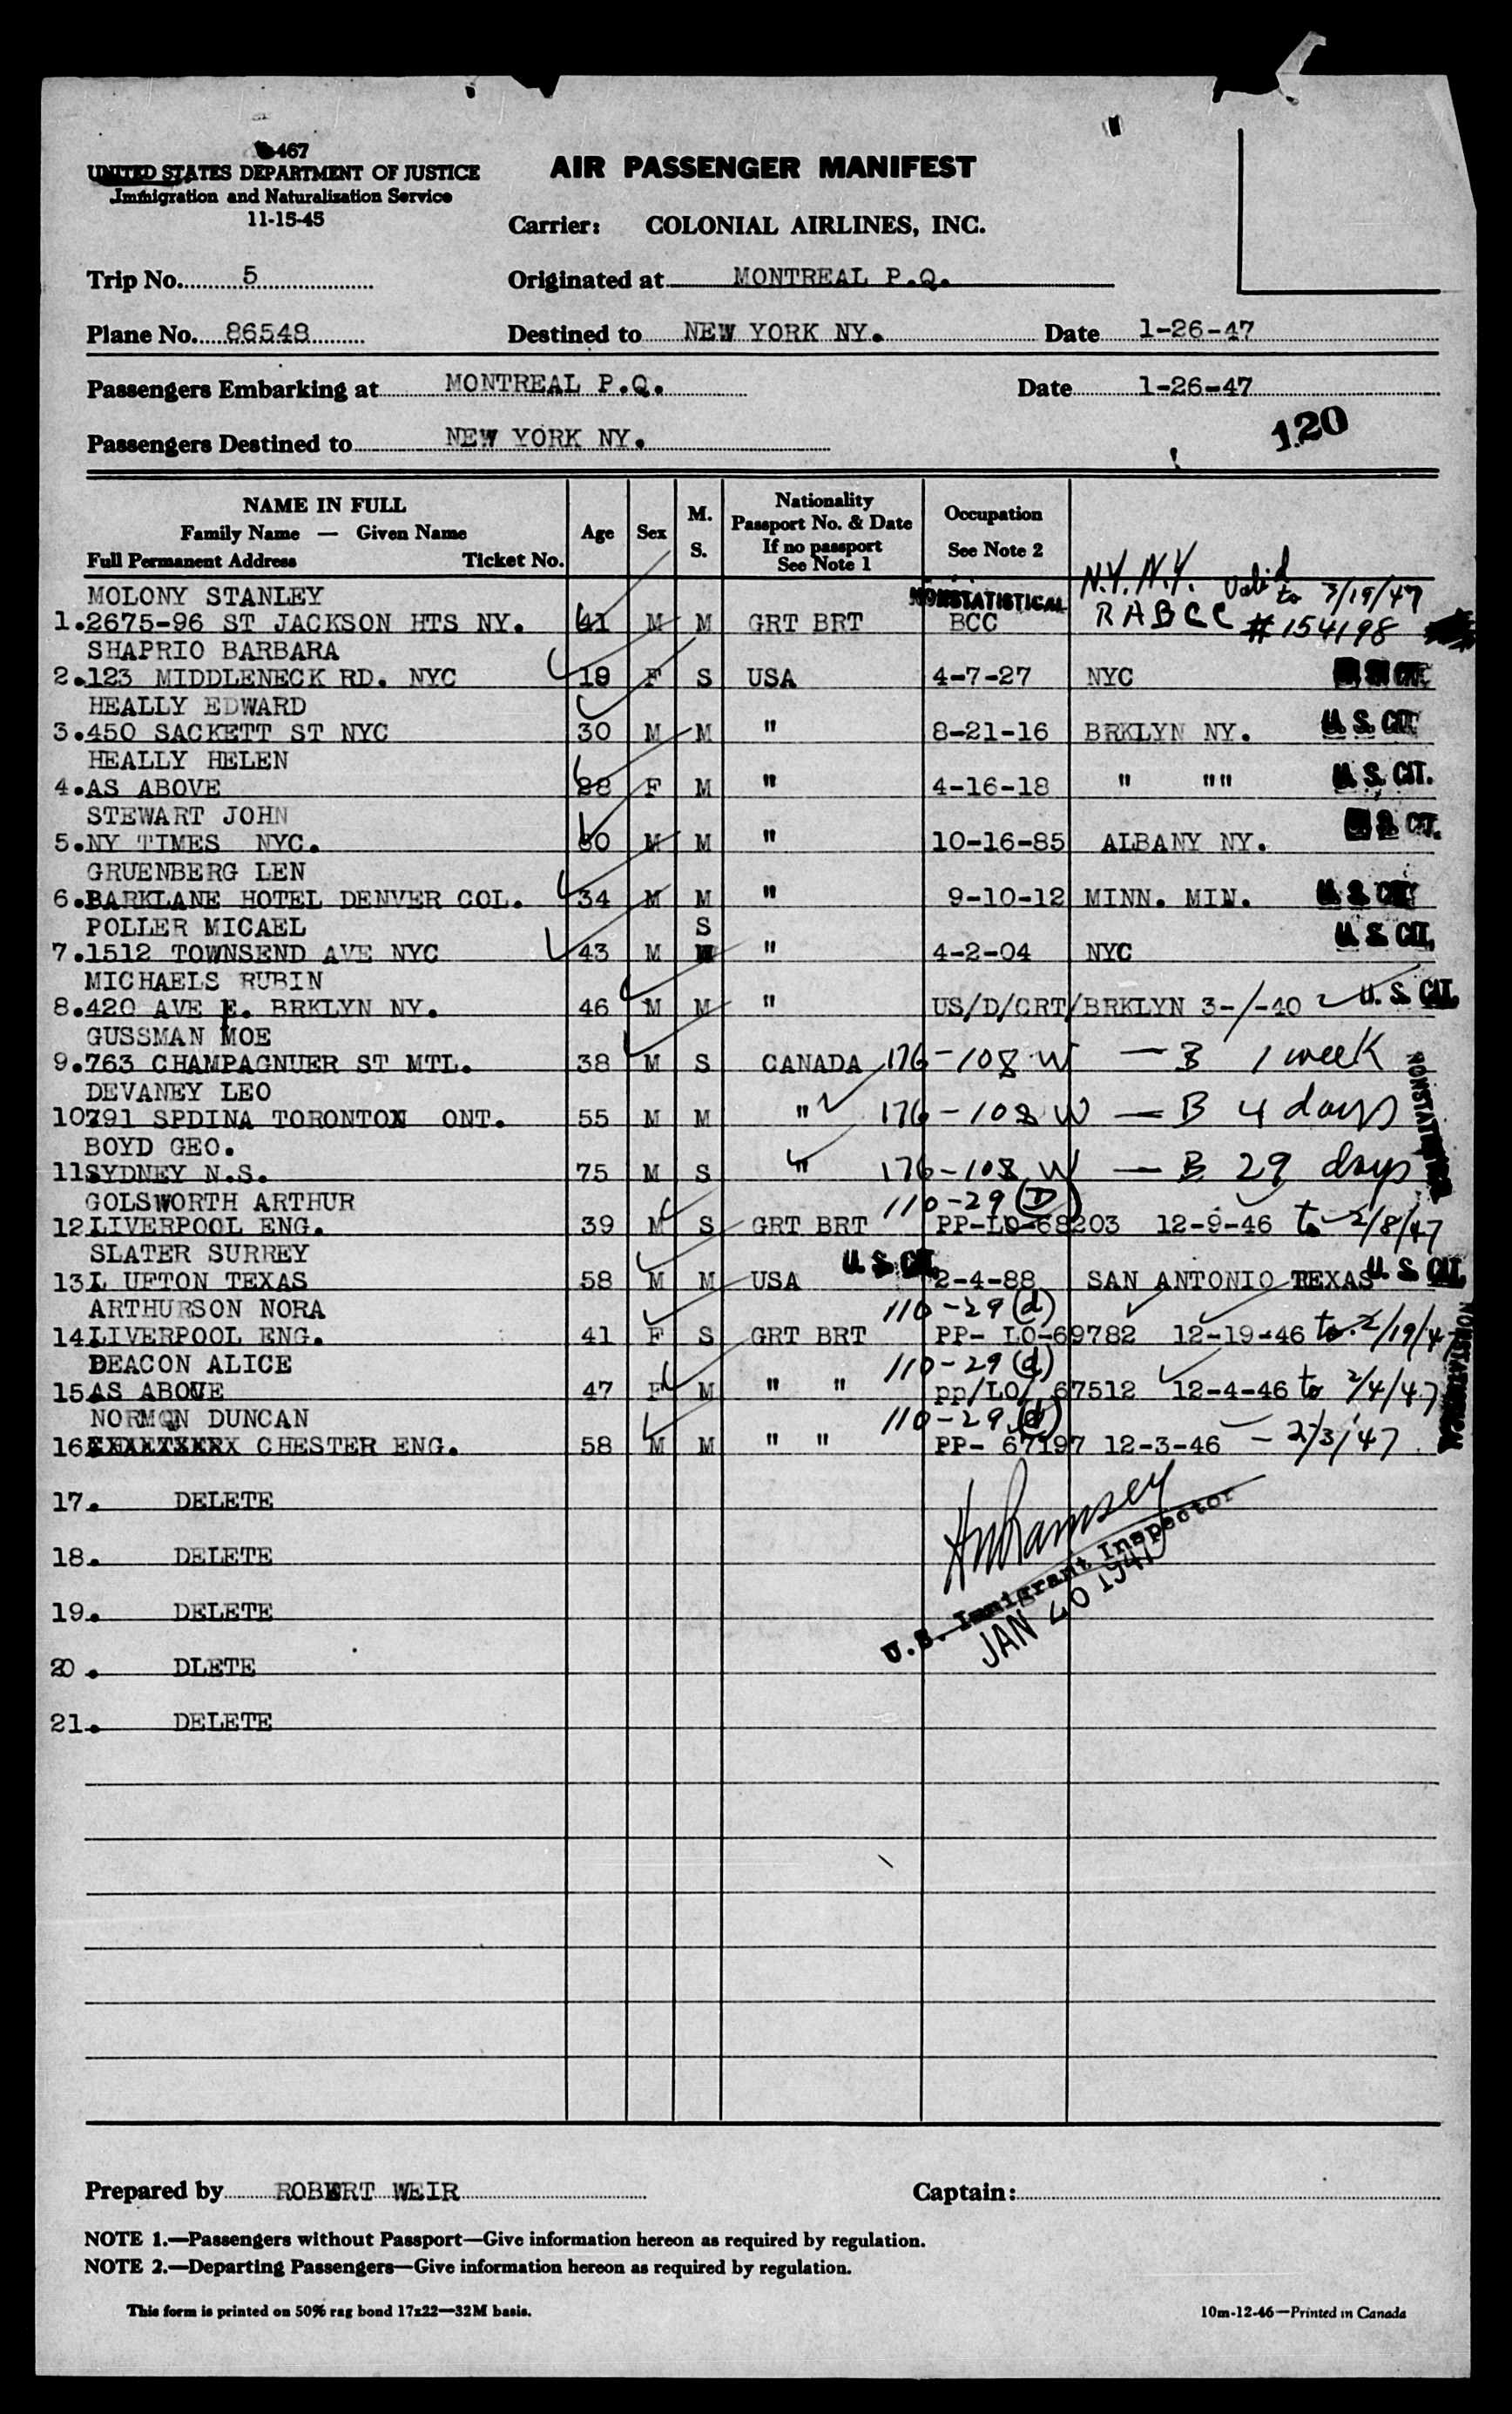 467
UNITED STATES DEPARTMENT OF JUSTICE
Immigration and Naturalization Service
11-15-45
AIR PASSENGER MANIFEST
Carrier: COLONIAL AIRLINES, INC.
Trip No. 5 Originated at MONTREAL P.Q.
Plane No. 86548 Destined to NEW YORK NY. Date 1-26-47
Passengers Embarking at MONTREAL P.Q. Date 1-26-47
Passengers Destined to NEW YORK NY.
120
NAME IN FULL
Family Name — Given Name
Full Permanent Address Ticket No.
Age Sex M. S.
Nationality
Passport No. & Date
If no passport
See Note 1
Occupation
See Note 2
MOLONY STANLEY NONSTATISTICAL N.Y. N.Y. Valid to 3/19/47
1. 2675-96 ST JACKSON HTS NY. 41 M M GRT BRT BCC RABCC #154198
SHAPRIO BARBARA
2. 123 MIDDLENECK RD. NYC 19 F S USA 4-7-27 NYC
HEALLY EDWARD
3. 450 SACKETT ST NYC 30 M M " 8-21-16 BRKLYN NY. U. S. CIT.
HEALLY HELEN
4. AS ABOVE 28 F M " 4-16-18 " "" U. S. CIT.
STEWART JOHN
5. NY TIMES NYC. 60 M M " 10-16-85 ALBANY NY. CIT.
GRUENBERG LEN
6. BARKLANE HOTEL DENVER COL. 34 M M " 9-10-12 MINN. MIN. U. S. CIT.
POLLER MICAEL S
7. 1512 TOWNSEND AVE NYC 43 M " 4-2-04 NYC U. S. CIT.
MICHAELS RUBIN
8. 420 AVE E. BRKLYN NY. 46 M M " US/D/CRT/BRKLYN 3-/-40 U. S. CIT.
GUSSMAN MOE
9. 763 CHAMPAGNUER ST MTL. 38 M S CANADA 176-108 W — B 1 week
DEVANEY LEO
10 791 SPDINA TORONTON ONT. 55 M M " 176-108 W — B 4 days
BOYD GEO.
11 SYDNEY N.S. 75 M S " 176-108 W — B 29 days
NONSTATISTICAL
GOLSWORTH ARTHUR 110-29 (D)
12 LIVERPOOL ENG. 39 M S GRT BRT PP-LO-68203 12-9-46 to 2/8/47
SLATER SURREY
13 L UFTON TEXAS 58 M M USA U. S. CIT. 2-4-88 SAN ANTONIO TEXAS U. S. CIT.
ARTHURSON NORA 110-29 (d)
14 LIVERPOOL ENG. 41 F S GRT BRT PP- LO-69782 12-19-46 to 2/19/47
DEACON ALICE 110-29 (d)
15 AS ABOVE 47 F M " " pp/LO/ 67512 12-4-46 to 2/4/47
NORMON DUNCAN 110-29 (d)
16 CHESTER ENG. 58 M M " " PP- 67197 12-3-46 — 2/3/47
NONSTATISTICAL
17. DELETE
18. DELETE
19. DELETE
20 . DLETE
21. DELETE
Ramsey
U.S. Immigrant Inspector
JAN 1947
Prepared by ROBERT WEIR Captain:
NOTE 1.—Passengers without Passport—Give information hereon as required by regulation.
NOTE 2.—Departing Passengers—Give information hereon as required by regulation.
This form is printed on 50% rag bond 17x22—32M basis. 10m-12-46—Printed in Canada